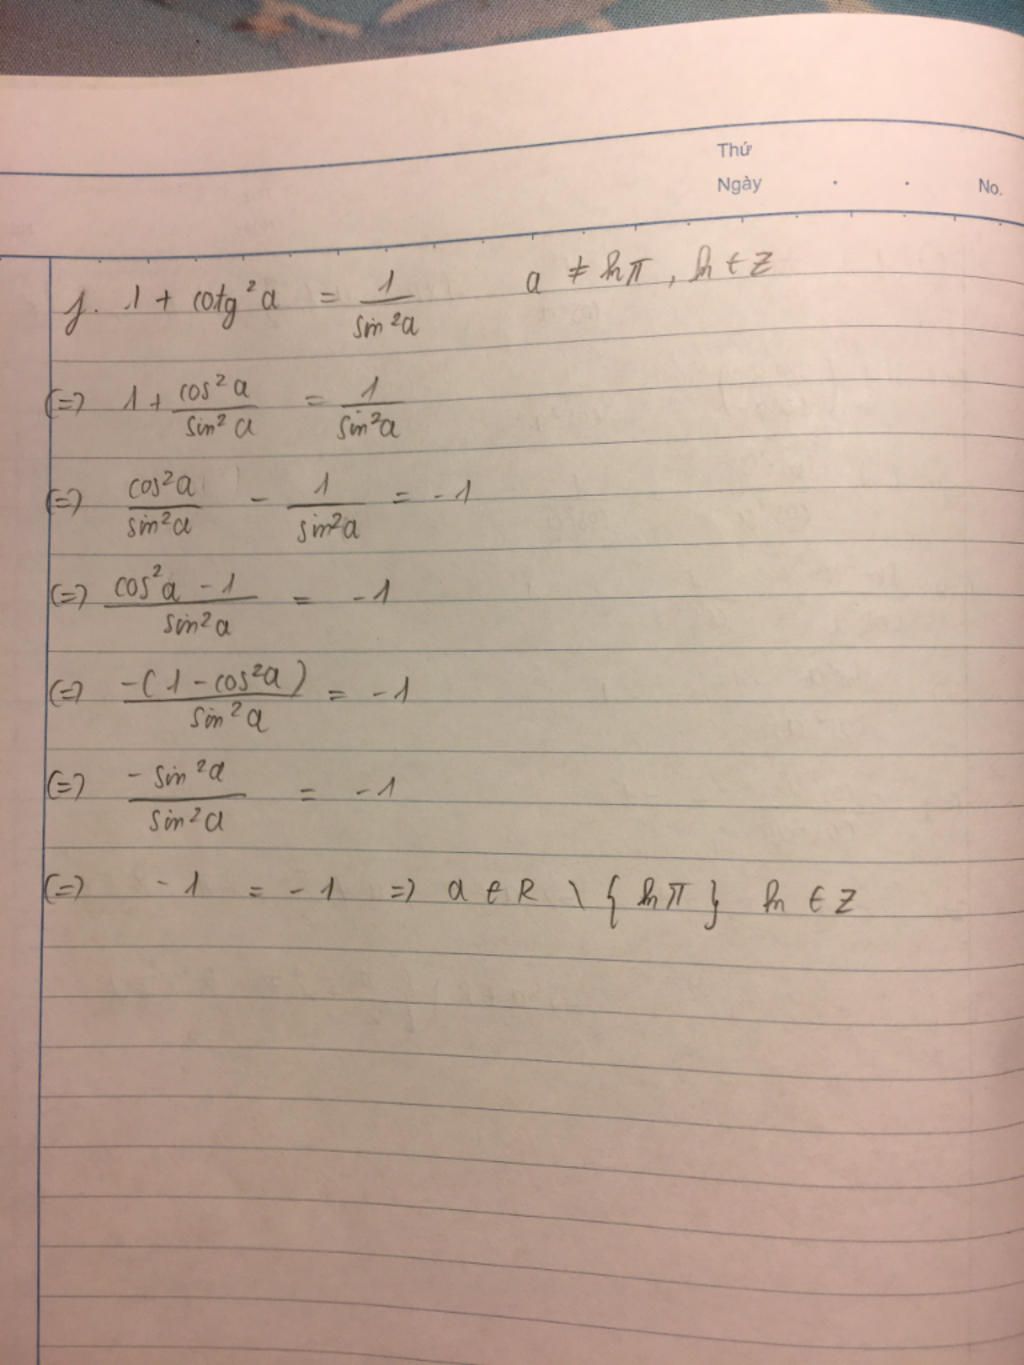 Thứ
Ngày . . No.
f. 1 + cotg²a = 1/sin²a a ≠ kπ, k ∈ Z
(=) 1 + cos²a/sin²a = 1/sin²a
(=) cos²a/sin²a - 1/sin²a = -1
(=) (cos²a - 1)/sin²a = -1
(=) -(1 - cos²a)/sin²a = -1
(=) -sin²a/sin²a = -1
(=) -1 = -1 => a ∈ R \ {kπ} k ∈ Z